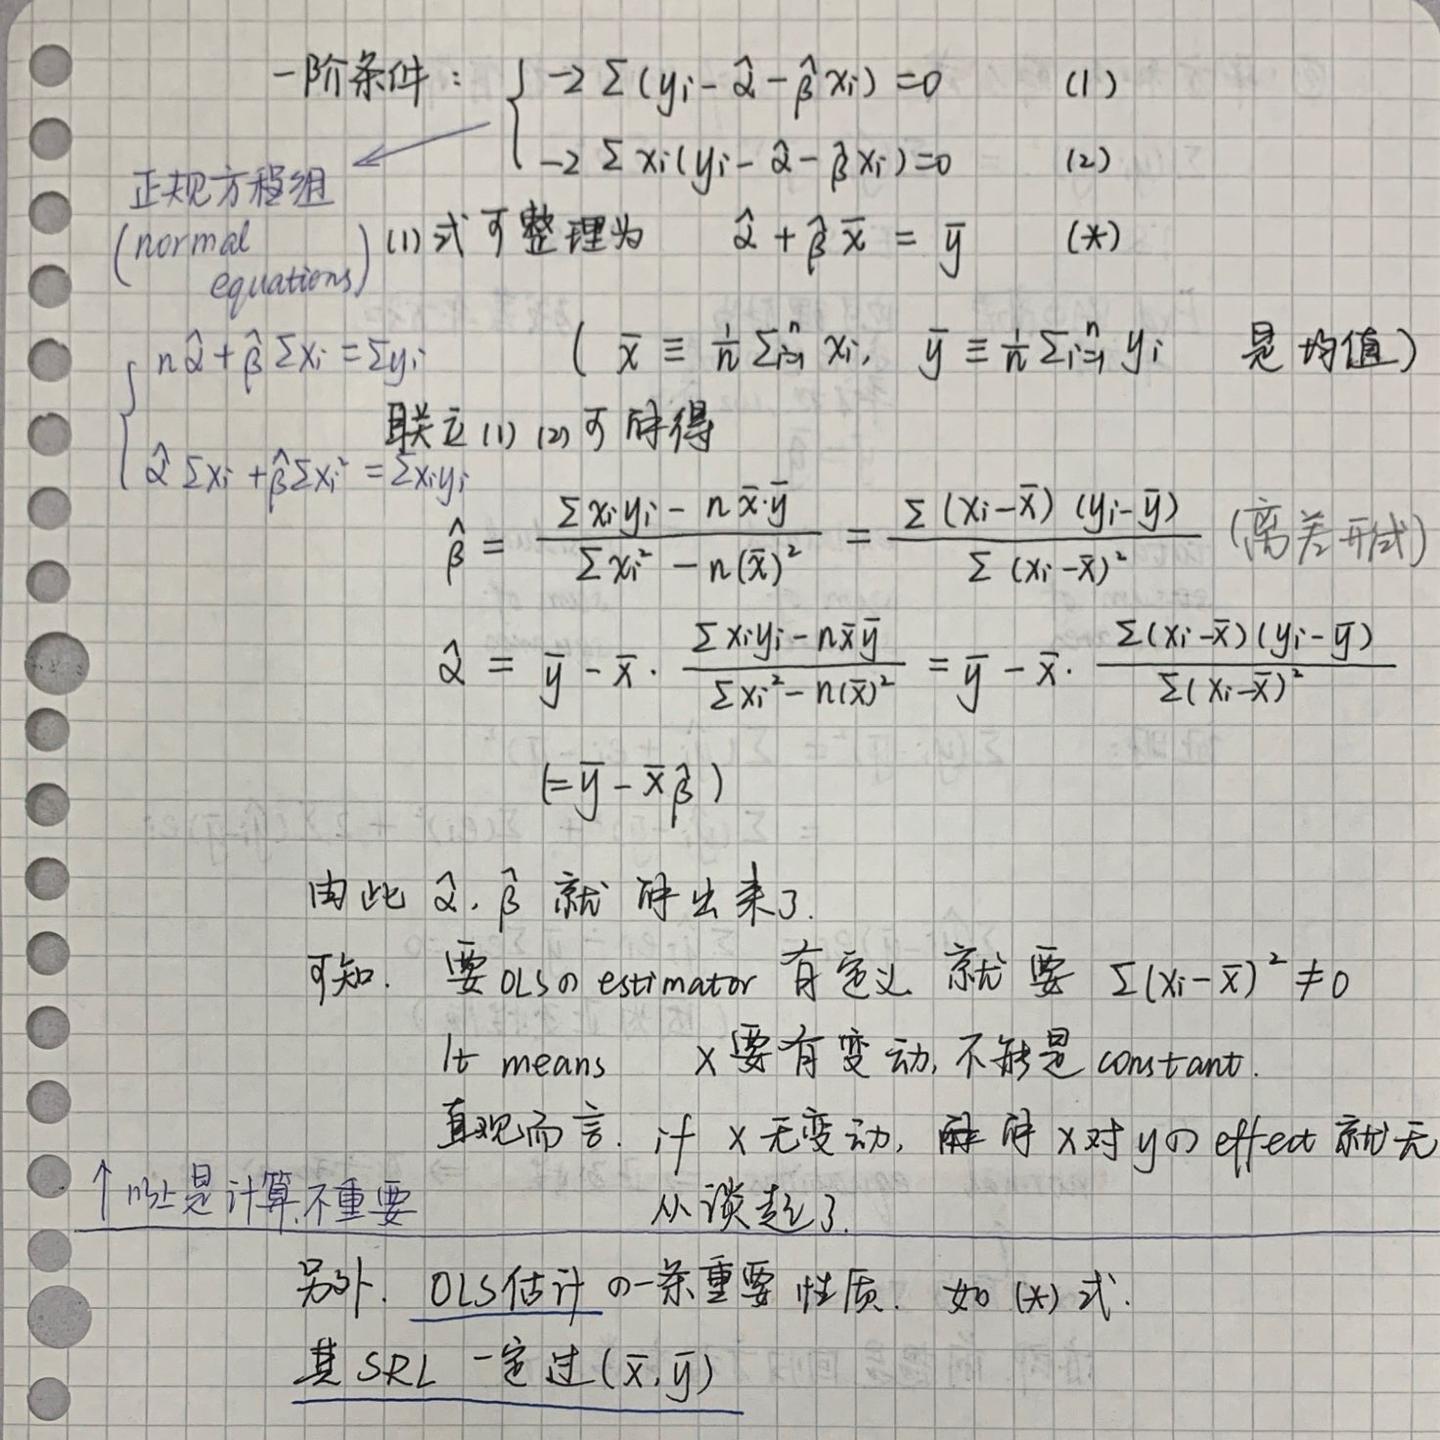 一阶条件: { -2 Σ(yi - α̂ - β̂ xi) = 0 (1)
-2 Σ xi(yi - α̂ - β̂ xi) = 0 (2)
正规方程组
(normal equations)
(1)式可整理为 α̂ + β̂ x̄ = ȳ (*)
{ nα̂ + β̂ Σxi = Σyi
α̂ Σxi + β̂ Σxi² = Σxiyi
( x̄ ≡ 1/n Σⁿᵢ₌₁ xi, ȳ ≡ 1/n Σⁿᵢ₌₁ yi 是均值)
联立(1)(2)可解得
β̂ = (Σxiyi - n x̄·ȳ) / (Σxi² - n(x̄)²) = Σ(xi - x̄)(yi - ȳ) / Σ(xi - x̄)² (离差形式)
α̂ = ȳ - x̄ · (Σxiyi - n x̄ȳ) / (Σxi² - n(x̄)²) = ȳ - x̄ · Σ(xi - x̄)(yi - ȳ) / Σ(xi - x̄)²
(= ȳ - x̄β̂)
由此 α̂, β̂ 就解出来了.
可知. 要OLSの estimator 有定义 就要 Σ(xi - x̄)² ≠ 0
It means x要有变动, 不能是constant.
直观而言. if x无变动, 解x对yの effect 就无
从谈起了.
↑以上是计算,不重要
另外. OLS估计の一条重要性质. 如(*)式.
其SRL 一定过(x̄, ȳ)